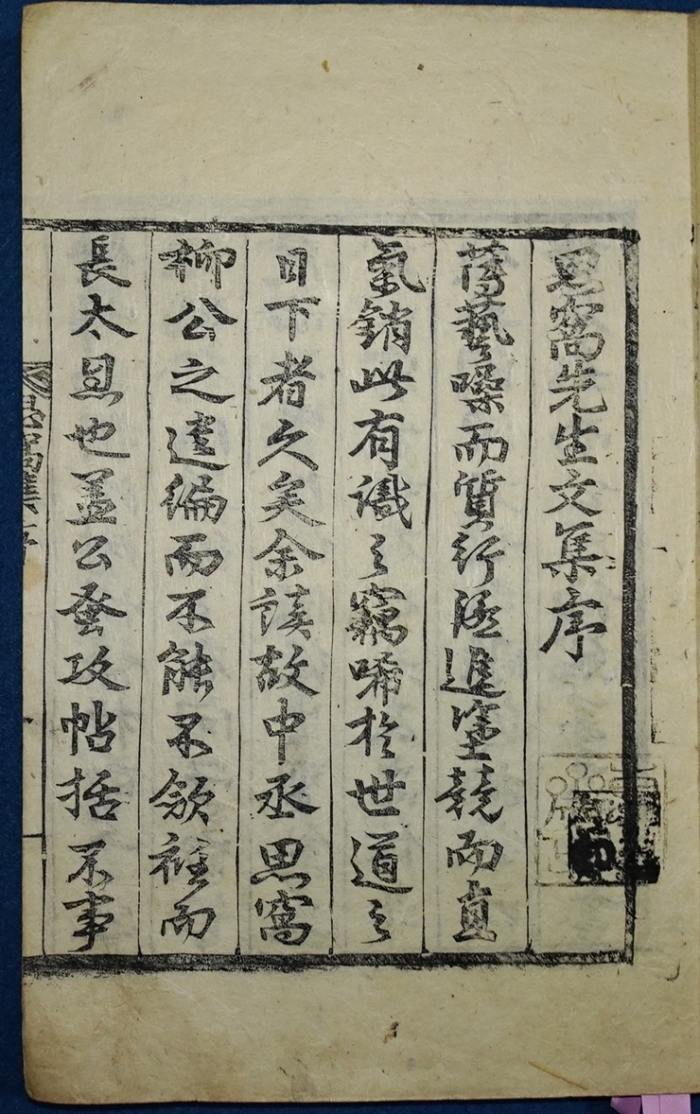 思窩先生文集序
藝噪而質行湮進塗競而直
氣銷此有識之竊唏於世道之
日下者久矣余讀故中丞思窩
柳公之遺編而不能不斂衽而
長太息也蓋公蚤攻帖括不事
思窩集序